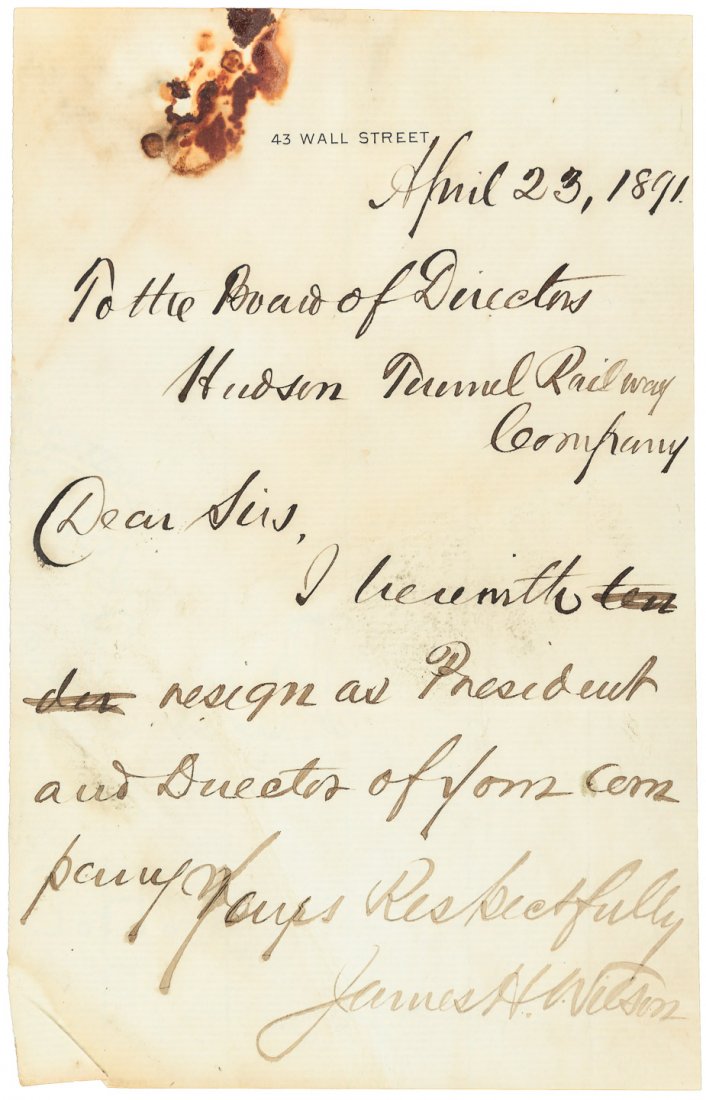 43 WALL STREET
April 23, 1891.
To the Board of Directors
Hudson Tunnel Railway
Company
Dear Sirs,
I herewith ten
der resign as President
and Director of your com
pany Yours Respectfully
James H. Wilson